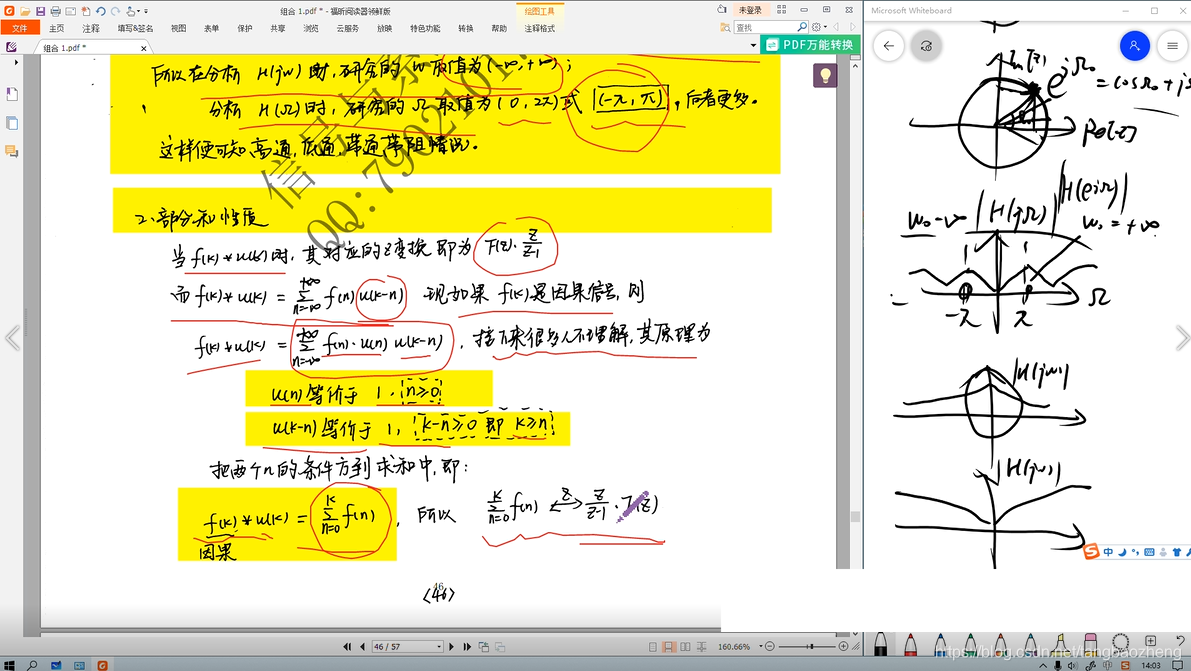 组合 1.pdf * - 福昕阅读器领鲜版
绘图工具
未登录
文件 主页 注释 填写&签名 视图 表单 保护 共享 浏览 云服务 放映 特色功能 转换 帮助 注释格式
查找
组合 1.pdf *
PDF万能转换
所以在分析 H(jw) 时,研究的 w 取值为 (-∞,+∞);
分析 H(Ω) 时,研究的 Ω 取值为 (0, 2π) 或 (-π, π),后者更多。
这样便可知高通,低通,带通带阻情况。
2、部分和性质
当 f(k)*u(k) 时,其对应的Z变换即为 F(z)·z/(z-1)
而 f(k)*u(k) = Σ(n=-∞→+∞) f(n) u(k-n) 现如果 f(k) 是因果信号,则
f(k)*u(k) = Σ(n=-∞→+∞) f(n)·u(n) u(k-n),接下来很多人不理解,其原理为
u(n)等价于 1, n≥0
u(k-n)等价于 1, k-n≥0 即 k≥n
把两个n的条件方到求和中,即:
f(k)*u(k) = Σ(n=0→k) f(n),所以 Σ(n=0→k) f(n) ↔(z) z/(z-1)·F(z)
因果
<46>
46 / 57
160.66%
Microsoft Whiteboard
Im[z]
e^jΩ₀
= cosΩ₀ + j
Re[z]
|H(e^jΩ)|
w₀=-∞ |H(jΩ)| w₀=+∞
-π π Ω
|H(jw)|
|H(jw)|
中
14:03